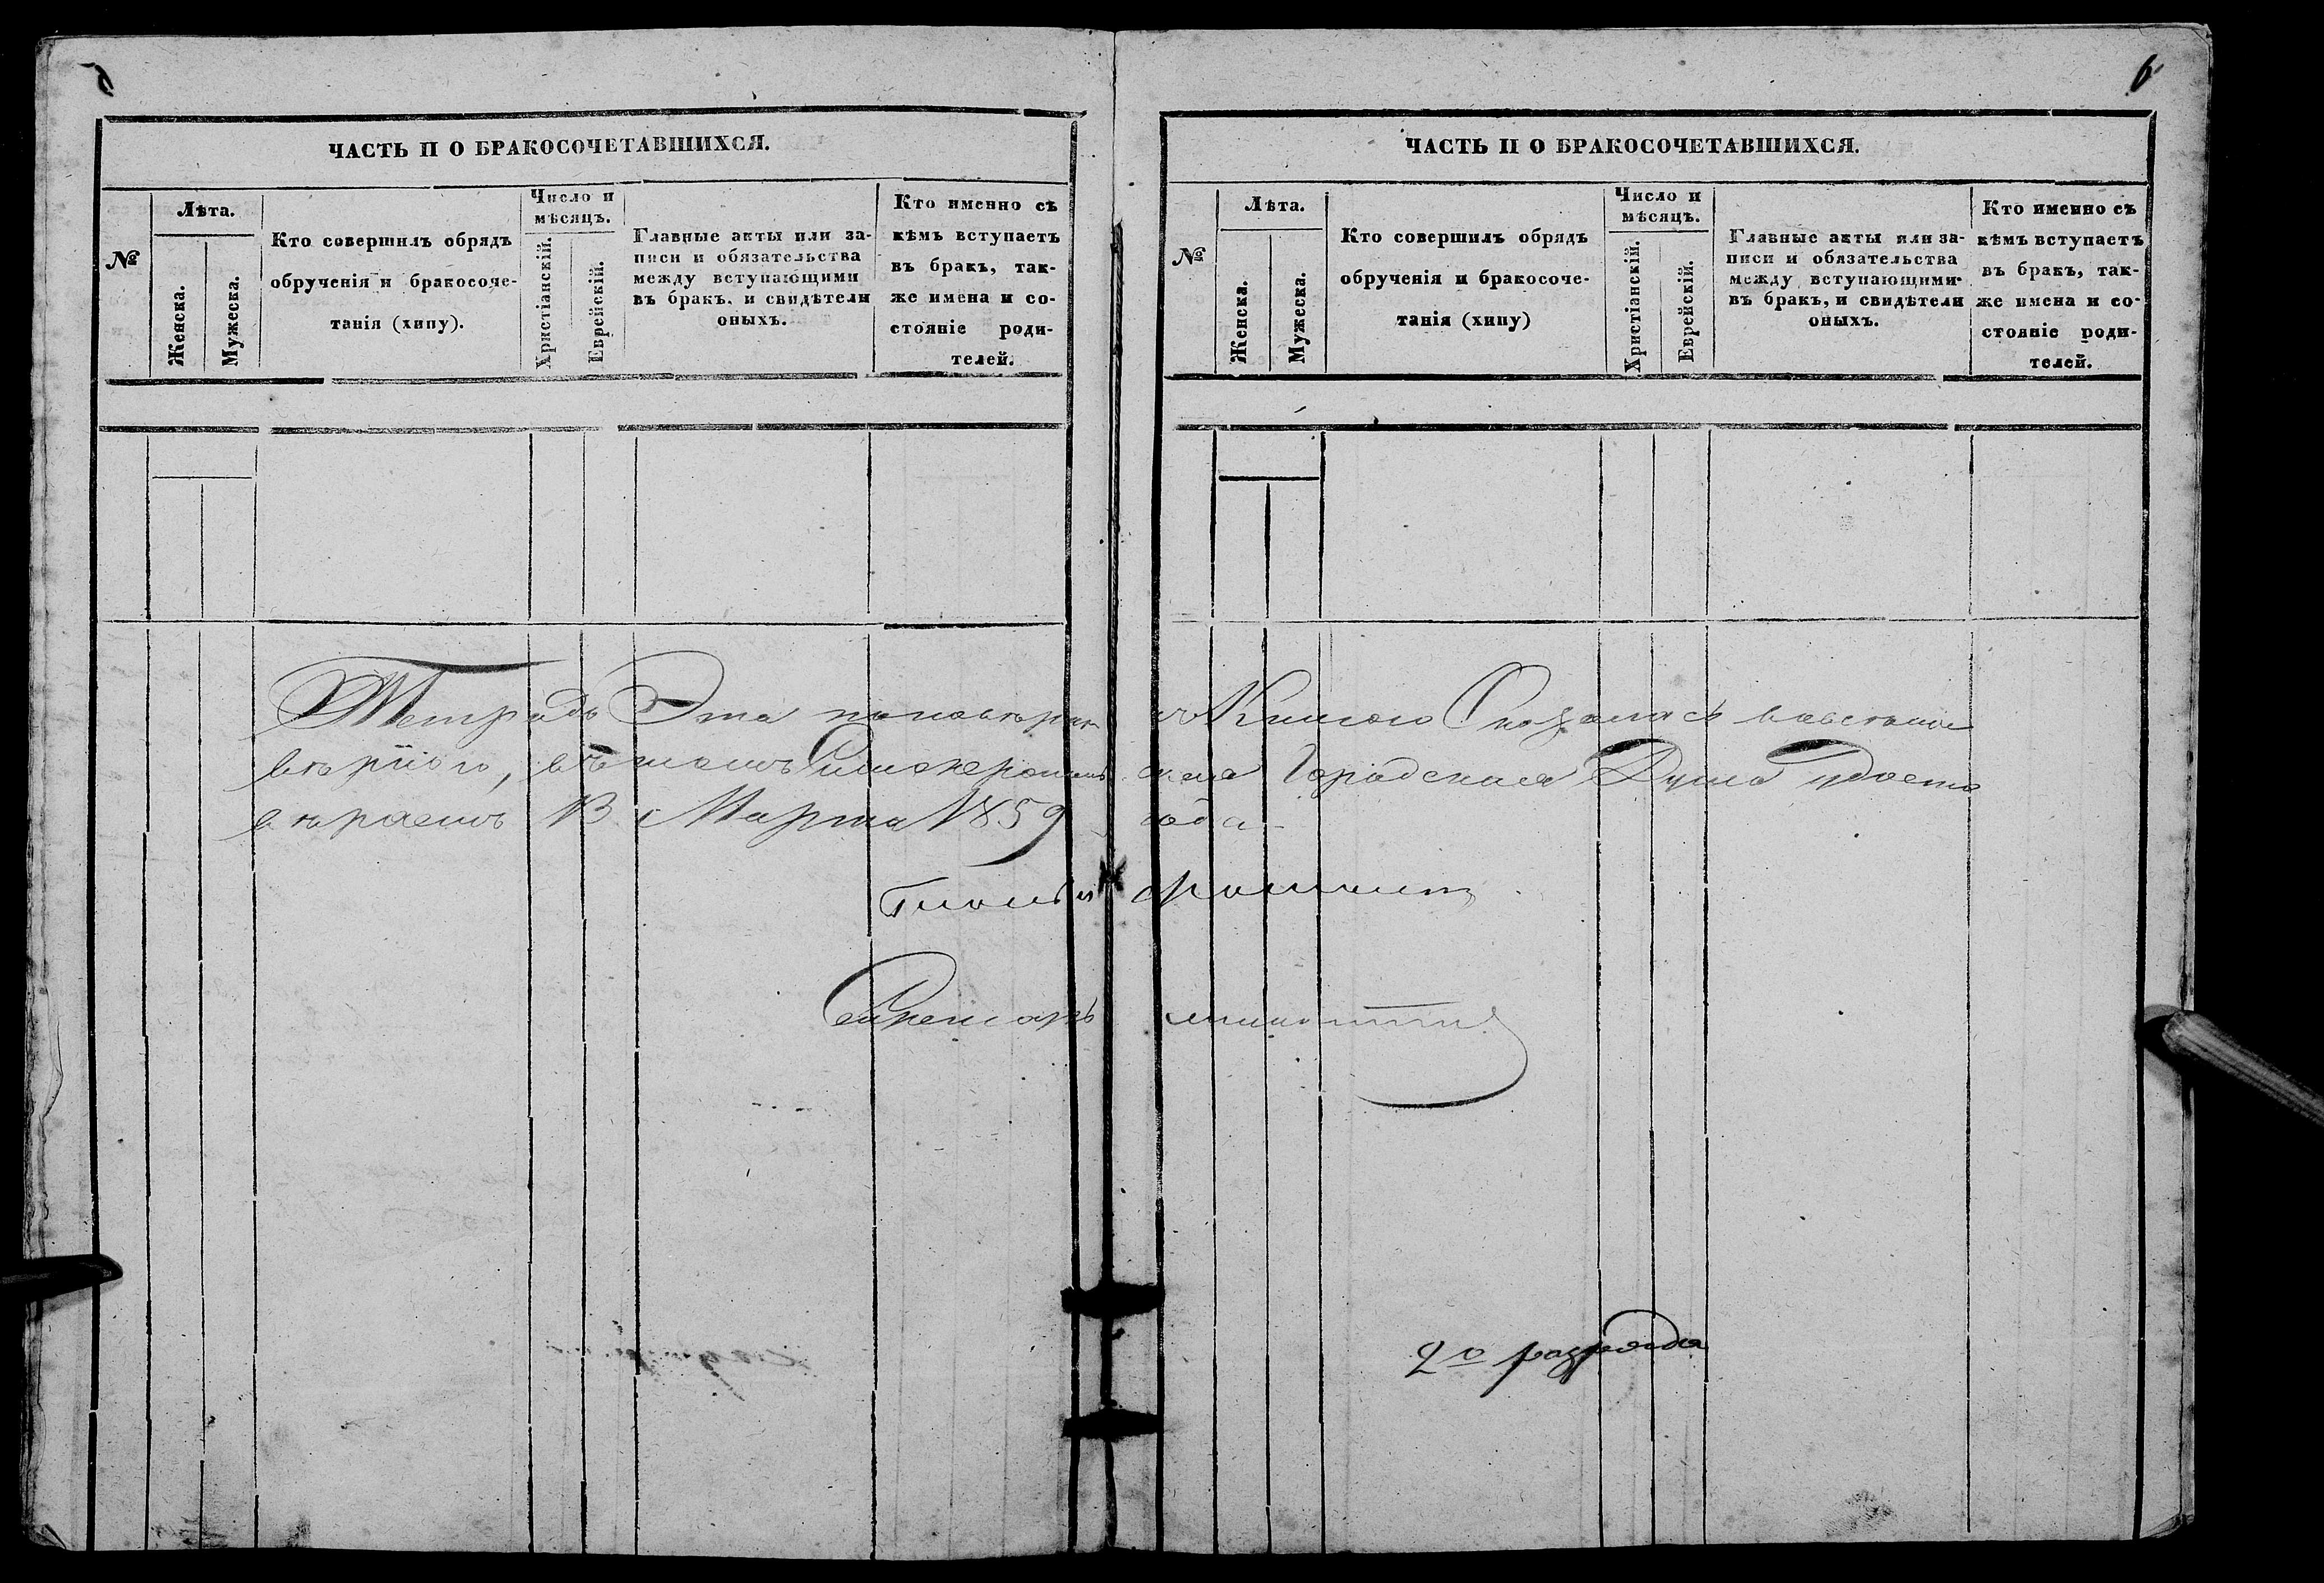 6
ЧАСТЬ II О БРАКОСОЧЕТАВШИХСЯ.
№
Лѣта.
Женска.
Мужеска.
Кто совершилъ обрядъ
обрученія и бракосоче-
танія (хипу).
Число и
мѣсяцъ.
Христіанскій.
Еврейскій.
Главные акты или за-
писи и обязательства
между вступающими
въ бракъ, и свидѣтели
оныхъ.
Кто именно съ
кѣмъ вступаетъ
въ бракъ, так-
же имена и со-
стояніе роди-
телей.
ЧАСТЬ II О БРАКОСОЧЕТАВШИХСЯ.
№
Лѣта.
Женска.
Мужеска.
Кто совершилъ обрядъ
обрученія и бракосоче-
танія (хипу)
Число и
мѣсяцъ.
Христіанскій.
Еврейскій.
Главные акты или за-
писи и обязательства
между вступающими
въ бракъ, и свидѣтели
оныхъ.
Кто именно съ
кѣмъ вступаетъ
въ бракъ, так-
же имена и со-
стояніе роди-
телей.
Тетрадь Эта Книгою Оказалась
въ томъ Городская Дума удосто
вѣряетъ 13 Марта 1859 года
Гласный
Секретарь
2го разряда